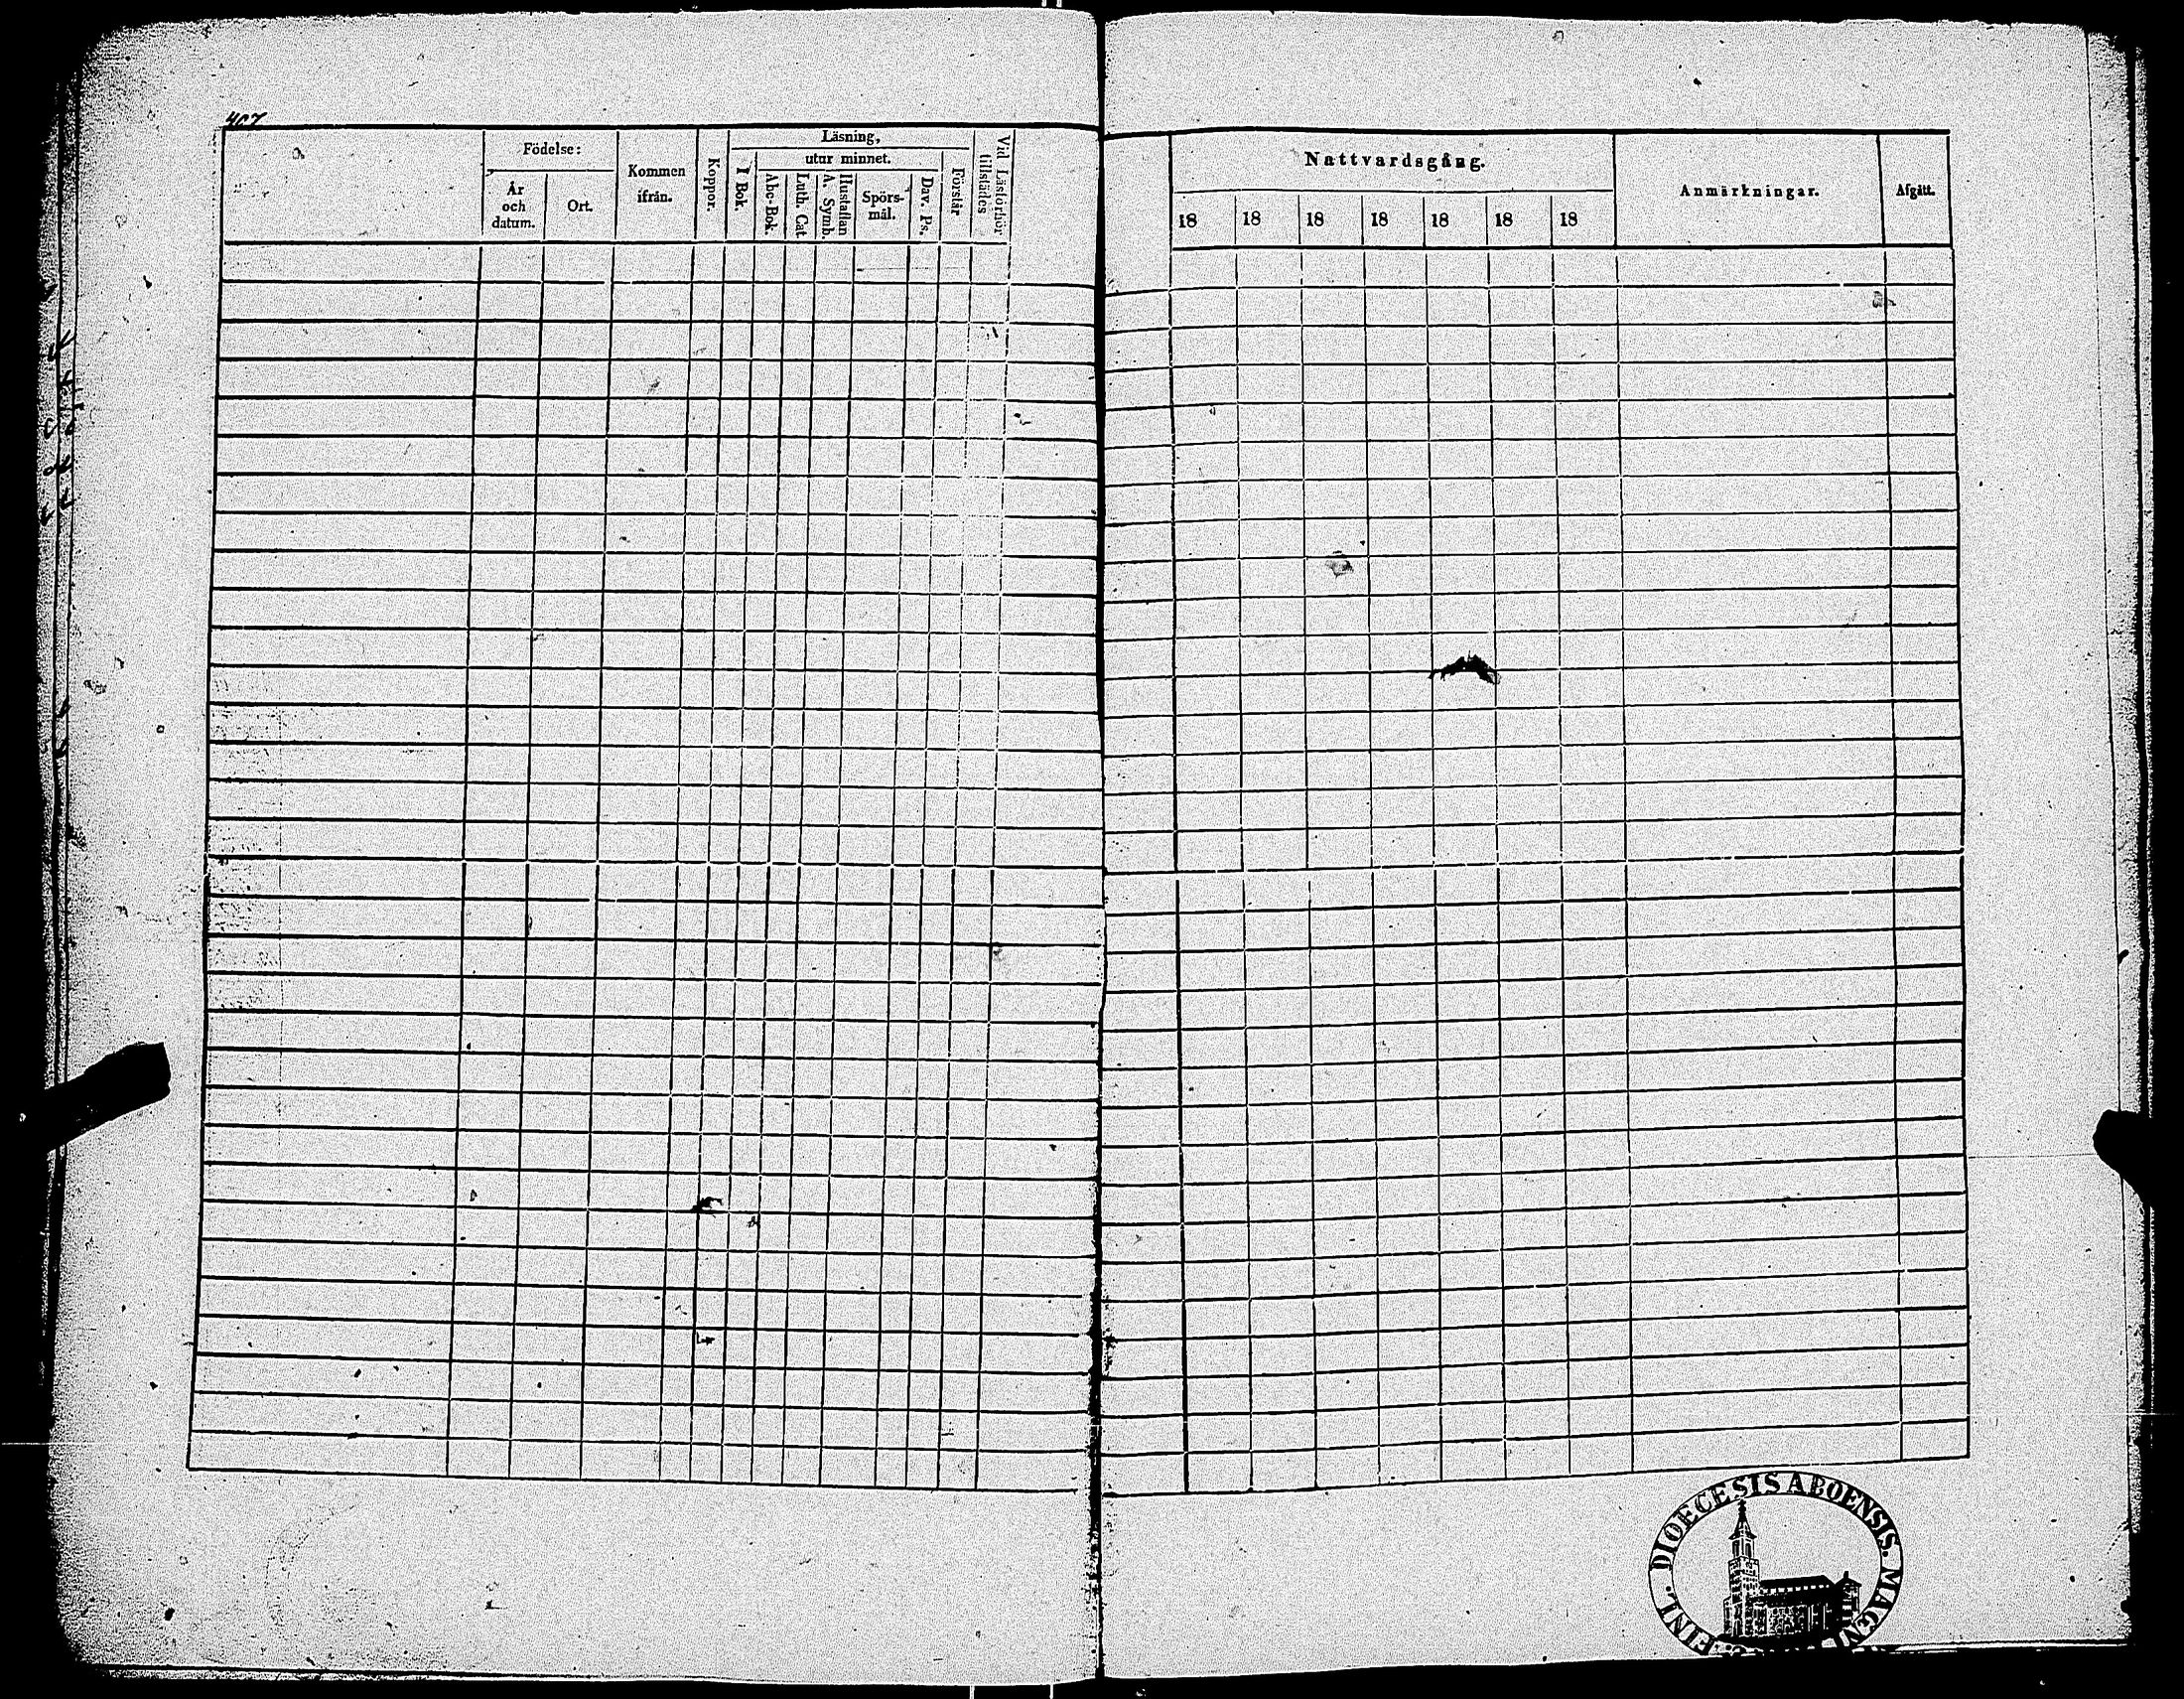 407
Födelse:
År och datum.
Ort.
Kommen ifrån.
Koppor.
Läsning,
I Bok.
utur minnet.
Abc-Bok.
Luth. Cat.
Hustaflan A. Symb.
Spörs-mål.
Dav. Ps.
Förstår
Vid Läsförhör tillstädes
Nattvardsgång.
18 18 18 18 18 18 18
Anmärkningar.
Afgått.
DIOECESIS ABOENSIS. MAGNI FINL.